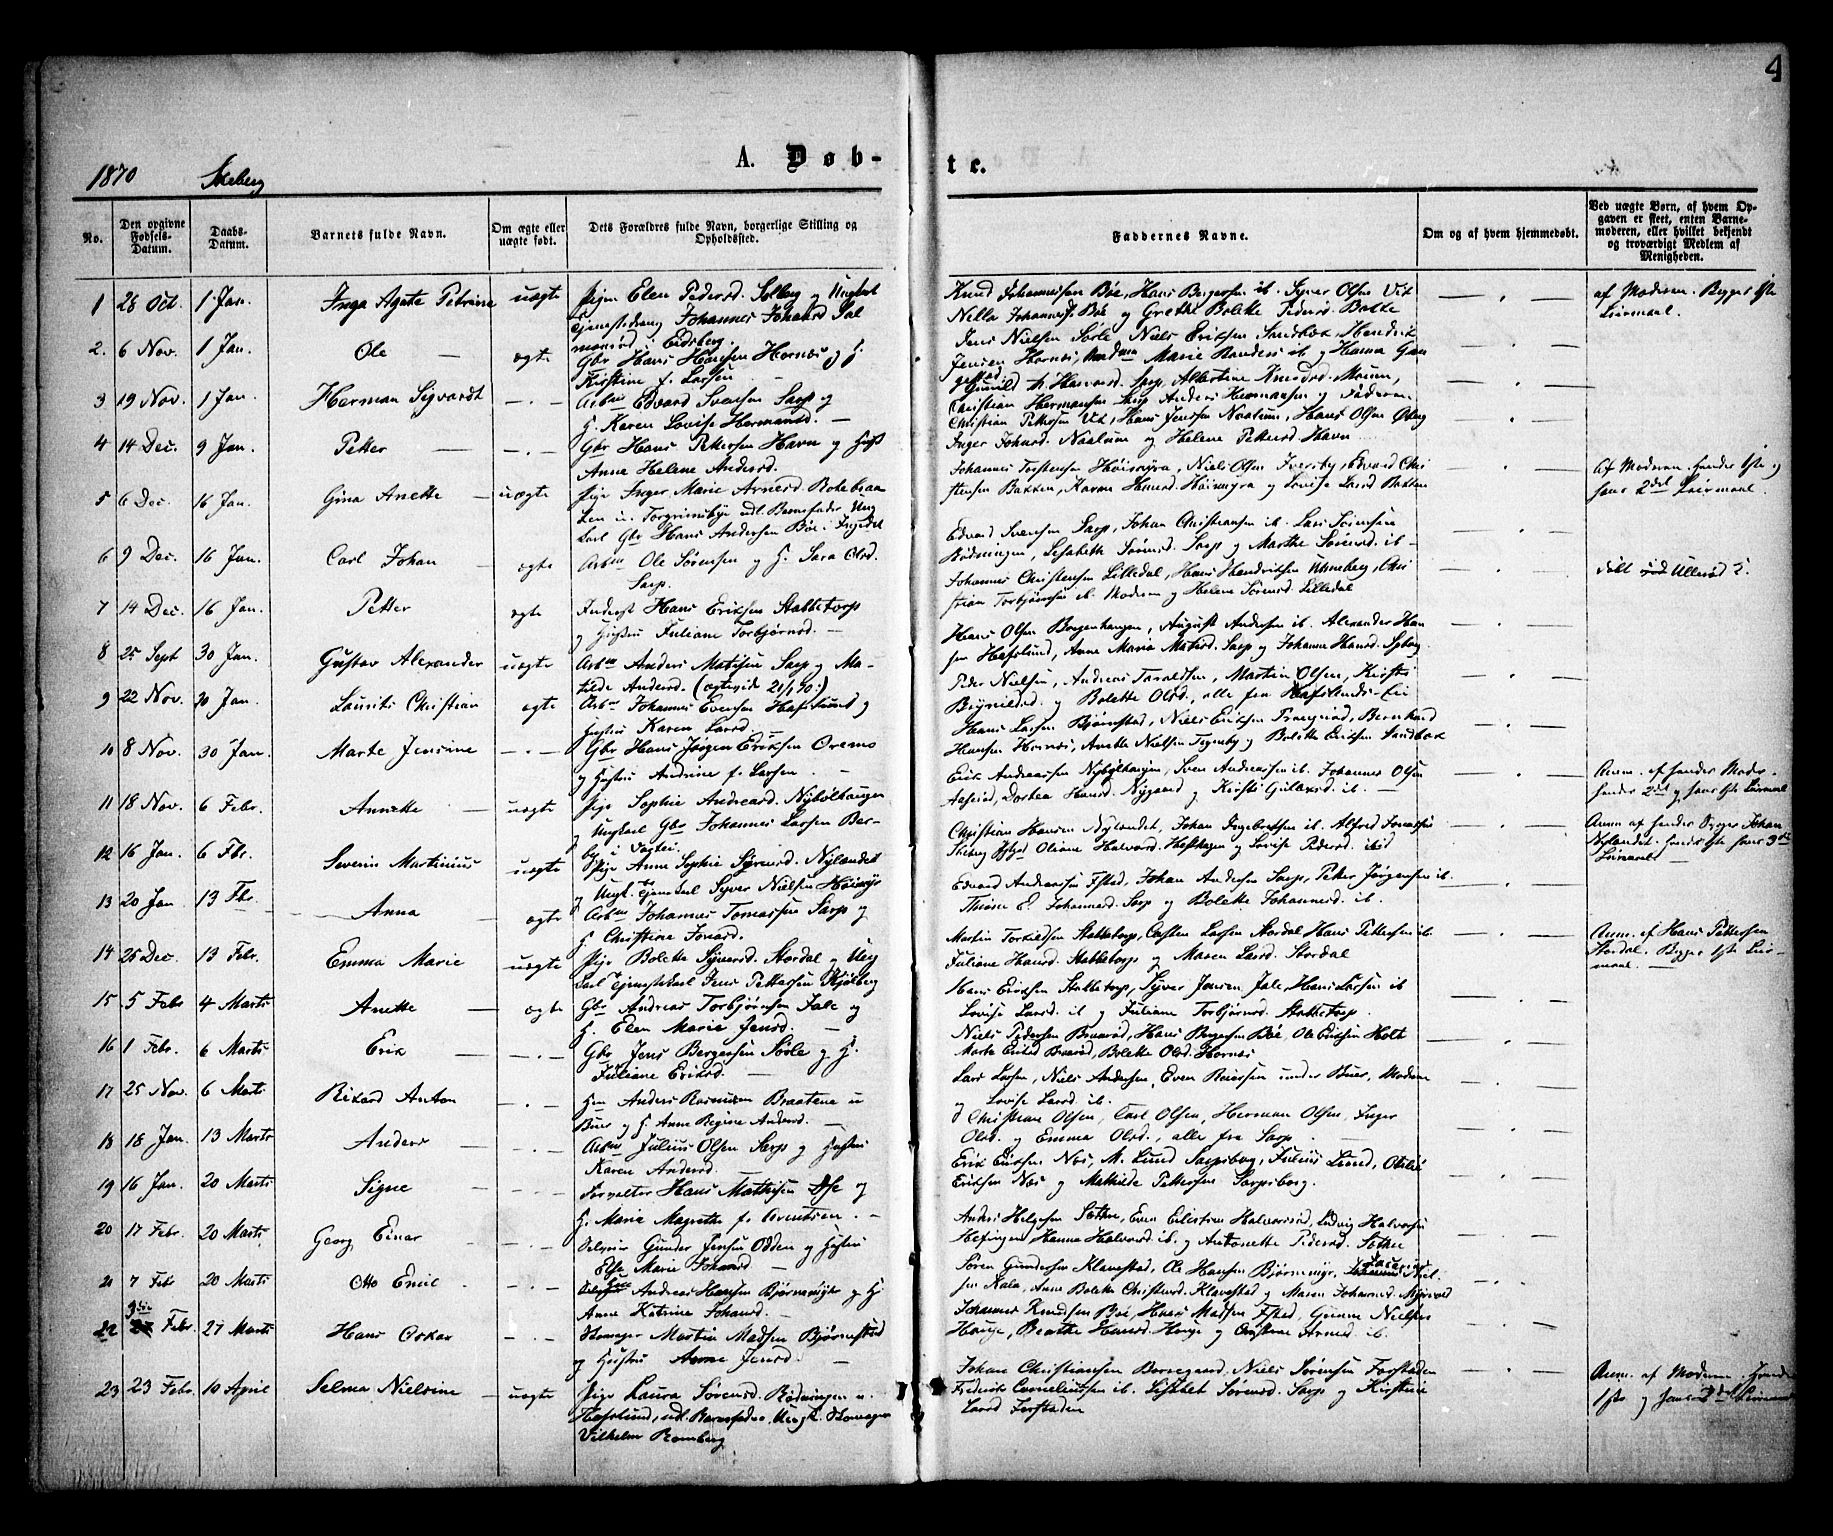 4
1870 Skeberg
A. Døb-
te.
No.
Den opgivne Fødsels-Datum.
Daabs-Datum.
Barnets fulde Navn.
Om ægte eller uægte født.
Dets Forældres fulde Navn, borgerlige Stilling og Opholdssted.
Faddernes Navne.
Om og af hvem hjemmedøbt.
Ved uægte Børn, af hvem Opgaven er skeet, enten Barnemoderen, eller hvilket bekjendt og troværdigt Medlem af Menigheden.
1 26 Oct. 1 Jan. Inga Agate Petrine uægte
Pige Elen Pedersd. Solberg og Ungkarl
Johannes
Eidsberg.
Knud Johannessen Bøe, Hans Bergersen ib. Syver Olsen
Bøe og Grethe Bolette Pedersd. Bakke
af Moderen. Begges 1ste
Leiermaal.
2. 6 Nov. 1 Jan. Ole — ægte
Gbr Hans Hansen Hornæs og H.
Kirstine f. Larsen —
Jens Nielsen Sørle, Niels Eriksen Sandbæk, Hendrik
Jensen Hornæs, Marie ib og Hanna
3 19 Nov. 1 Jan. Herman Sigvardt — . —
Arbm Edvard Svensen Sarp og
H. Karen Lovise Hermansd. —
Gunild Th. Halvorsd. Sarp, Albertine Knudsd.
Christian Hermansen Sarp Anders Hermansen og Faderen
4 14 Dec. 9 Jan. Petter — — . —
Gbr Hans Pettersen Havn og Hust
Anne Helene Andersd.
Christian Pettersen Hans Jensen Naalum, Hans Olsen
Inger Johnsd. Naalum og Helene Pettersd. Havn
5 6 Dec. 16 Jan. Gina Anette — uægte
Pige Inger Marie Arnesd.
Torgrimsbye udl. Barnefader Ung
karl Gbr Hans Andersen Bøe i Ingedal
Johannes Torstensen Høimyra, Niels Olsen Iversby, Edvard Chri
stensen Bakken, Karen Hansd. Høimyra og Lovise Larsd Bakken
Af Moderen. hendes 1ste og
hans 2det Leiermaal.
6 9 Dec. 16 Jan. Carl Johan — ægte
Arbm Ole Sørensen og H. Sara Olsd.
Sarp.
Edvard Svensen Sarp, Johan Christiansen ib. Lars Sørensen
Rødningen, Lisabeth Sørensd. Sarp og Marthe Sørensd. ib —
7 14 Dec. 16 Jan. Petter ægte
Hans Eriksen Stabbetorp
og Hustru Juliane Torbjørnsd. —
Johannes Christensen Lilledal, Hans Hendriksen Unneberg, Chri
stian Torbjørnsen ib. Moderen og Helene Sørensd. Lilledal
døbt Ullerød K.
8 25 Sept 30 Jan. Gustav Alexander uægte
Arbm Anders Matisen Sarp og Ma-
tilde Andersd. (ægteviede 21/1 70.)
Hans Olsen Borgenhaugen, August Andersen ib. Alexander Han
sen Hafslund, Anne Maria Matisd. Sarp og Johanne Hansd.
9 22 Nov. 30 Jan. Laurits Christian ægte
Arbm Johannes Evensen Hafslund og
Hustru Karen Larsd.
Peder Nielsen, Andreas Taraldsen, Martin Olsen, Kirsti
Brynildsd. og Bolette Olsd., alle fra Hafslunds-Eie
10 8 Nov. 30 Jan. Marte Jensine — . —
Gbr Hans Jørgen Eriksen Oremo
og Hustru Andrine f. Larsen. —
Hans Larsen Bjørnstad, Niels Eriksen Bernhard
Hansen Hornæs, Anette Nielsen Tegneby og Bolette Eriksen Sandbæk
11 18 Nov. 6 Febr. Annette — uægte
Pige Sophie Andreasd. Nybølhaugen
og Ungkarl Gbr Johannes Larsen Ber-
by i
Erik Andreassen Nybølhaugen, Sven Andreassen ib. Johannes Olsen
Aaserød, Dorthea Hansd. Nygaard og Kirsti Gulaksd. ib. —
Anm. af hendes Moder.
hendes 2det og hans 1ste Leiermaal
12 16 Jan. 6 Fbr. Severin Martinius uægte
Pige Anne Sophie Syversd. Nylændet
og Ungk. Tjenestekarl Syver Nielsen Høimyr
Christian Hansen Nylændet, Johan Ingebretsen ib. Alfred
Oliane Halvorsd. og Lovise Pedersd. ibid
Anm af hendes Johan
Nylændet. hendes 1ste hans 3die
Leiermaal —
13 20 Jan 13 Fbr. Anna — ægte
Arbm Johannes Tomassen Sarp og
H. Christine Jonasd.
Edvard Andreassen Isted, Johan Andersen Sarp, Petter Jørgensen ib.
Johannesd. Sarp og Bolette Johannesd. ib.
14 25 Dec. 13 Febr. Emma Marie uægte
Pige Bolette Syversd. Stordal og Ung
karl Tjenestekarl Jens Pettersen Kjølberg
Martin Torkildsen Stabbetorp, Carsten Larsen Stordal Hans Pettersen ib.
Juliane Hansd. Stabbetorp og Maren Larsd. Stordal
Anm. af Hans Pettersen
Stordal. Begges 1ste Leier-
maal. —
15 5 Febr 4 Marts Anette — ægte
Gbr Andreas Torbjørnsen Jale og
H. Elen Marie Jensd. —
Hans Eriksen Stabbetorp, Syver Jensen Jale, Hans Larsen ib
Lovise Larsd. ib og Juliane Torbjørnsd. Stabbetorp.
16 1 Febr. 6 Marts Erik — — . —
Gbr Jens Bergersen Sørle og H.
Juliane Eriksd. —
Niels Pedersen Hans Bergersen Bøe, Ole Eriksen Holt
Marte Eriksd Bolette Olsd. Hornæs
17 25 Nov. 6 Marts Rikard Anton — . —
Hm Anders Rasmusen Braatene u
Buer og H. Anne Regine Andersd. —
Lars Larsen, Niels Andersen, Even under Buer, Moderen
og Lovise Larsd ib.
18 18 Jan. 13 Marts Anders — — . —
Arbm Julius Olsen Sarp og Hustru
Karen Andersd. —
Christian Olsen, Carl Olsen, Herman Olsen, Inger
Olsd. og Emma Olsd., alle fra Sarp.
19 16 Jan. 20 Marts Signe — — . —
Forvalter Hans Mathisen og
H. Marie Magrethe f. Arentsen. —
Erik Eriksen Næs, M. Lund Sarpsborg, Julius Lund, Otilie
Eriksen Næs og Mathilde Pettersen Sarpsborg.
20 17 Febr. 20 Marts Georg Einar — . —
Selveier Gunder Jensen Odden og Hustru
Else Marie Johansd —
Anders Helgesen Even Halvorsrød, Ludvig Halvorsen
Hefingen Hanna Halvorsd. ib. og Antonette Pedersd.
21 7 Febr 20 Marts Otto Emil — . —
Andreas Hansen Bjørnemyr og H.
Anne Katrine Johansd. —
Søren Gundersen Klavestad, Ole Hansen Bjørnemyr,
Anne Bolette Christensd. Klavestad og Maren Johannesd.
22 9die Febr. 27 Marts Hans Oskar — . —
Skomager Martin Madsen Bjørnestad
og Hustru Anne Jensd. —
Johannes Knudsen Bøe, Hans Madsen Isted, Nielsen
Hauge, Berthe Hansd. Hauge og Arnesd. ib.
23 23 Febr. 10 April Selma Nielsine — uægte
Pige Laura Sørensd. Rødningen u.
Hafslund, udl. Barnefader, Ungk. Skomager
Vilhelm Romberg
Johan Christiansen Borregaard, Niels Sørensen Forstaden
Frederik Corneliussen ib. Lisabet Sørensd. Sarp og Kirstine
Larsd Forstaden
Anm. af Moderen. hendes
1ste og hans 2det Leiermaal